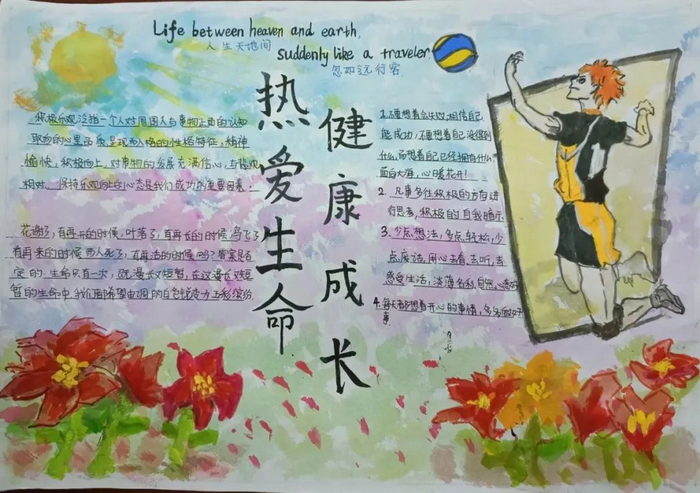 Life between heaven and earth,
人生天地间
suddenly like a traveler
忽如远行客
热爱生命
健康成长
积极乐观没指一个人对周围人与事物正面的认知
愉快、积极向上、对事物的发展充满信心，与悲观
相对。保持乐观向上的心态是我们成功的重要因素。
花谢了，有再开的时候，叶落了，有再长的时候，鸟飞了
有再来的时候，而人死了，有再活的时候吗？答案是否
定的，生命只有一次，既漫长又短暂，在这漫长又短
暂的生命中，我们
1.不要想着会失败，相信自己
能成功；不要想着自己没得到
什么，而想着自己已经拥有什么
面向大海，心暖花开！
2. 凡事多往积极的方向进
行思考，积极的自我暗示
3. 少点想法，多点轻松，少
点废话，用心去看，去听，去
感受生活，淡薄名利，自然心
4. 每天都想着开心的事情，多
事